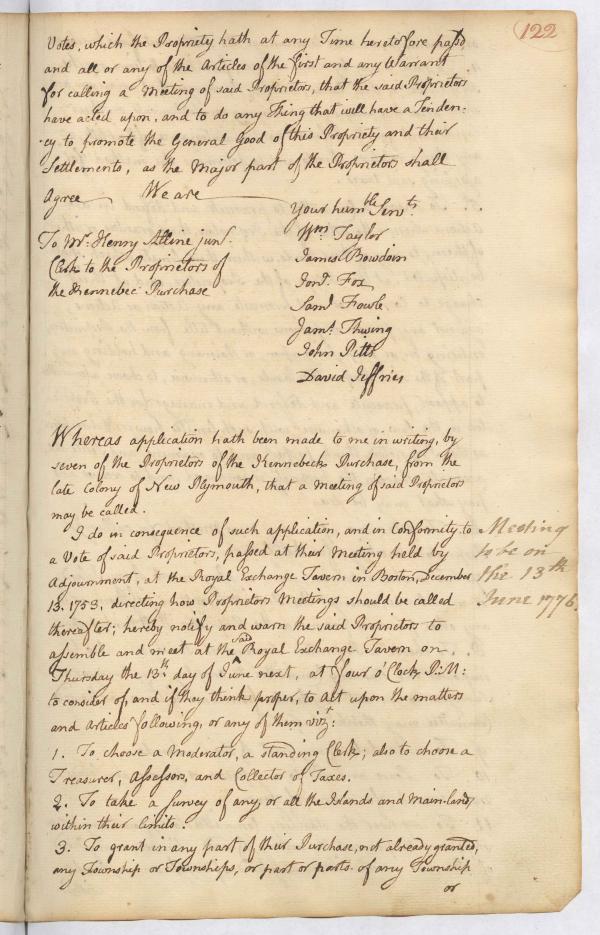 122
Votes, which the Propriety hath at any Time heretofore passd
and all or any of the Articles of the first and any Warrant
for calling a Meeting of said Proprietors, that the said Proprietors
have acted upon, and to do any Thing that will have a Tenden-
-cy to promote the General Good of this Propriety and their
Settlements, as the Major part of the Proprietors shall
Agree We are
Your humble Servts
To Mr. Henry Alline junr.
Clerk to the Proprietors of
the Kennebec Purchase
Wm. Taylor
James Bowdoin
Jond. Fox
Saml Fowle
Jams. Thwing
John Pitts
David Jeffries
Whereas application hath been made to me in writing, by
seven of the Proprietors of the Kennebeck Purchase, from the
late Colony of New Plymouth, that a Meeting of said Proprietors
may be called.
I do in consequence of such application, and in Conformity to
a Vote of said Proprietors, passed at their Meeting held by
Adjournment, at the Royal Exchange Tavern in Boston, December
13. 1753, directing how Proprietors Meetings should be called
thereafter; hereby notify and warn the said Proprietors to
assemble and meet at the said Royal Exchange Tavern on
Thursday the 13th day of June next, at four o'Clock P:M:
to consider of, and if they think proper, to Act upon the matters
and Articles following, or any of them vizt:
Meeting
to be on
the 13th
June 1776.
1. To choose a Moderator, a standing Clerk; also to choose a
Treasurer, Assessors, and Collector of Taxes.
2. To take a Survey of any, or all the Islands and Main-land,
within their limits.
3. To grant in any part of their Purchase, not already granted,
any Township or Townships, or part or parts of any Township
or